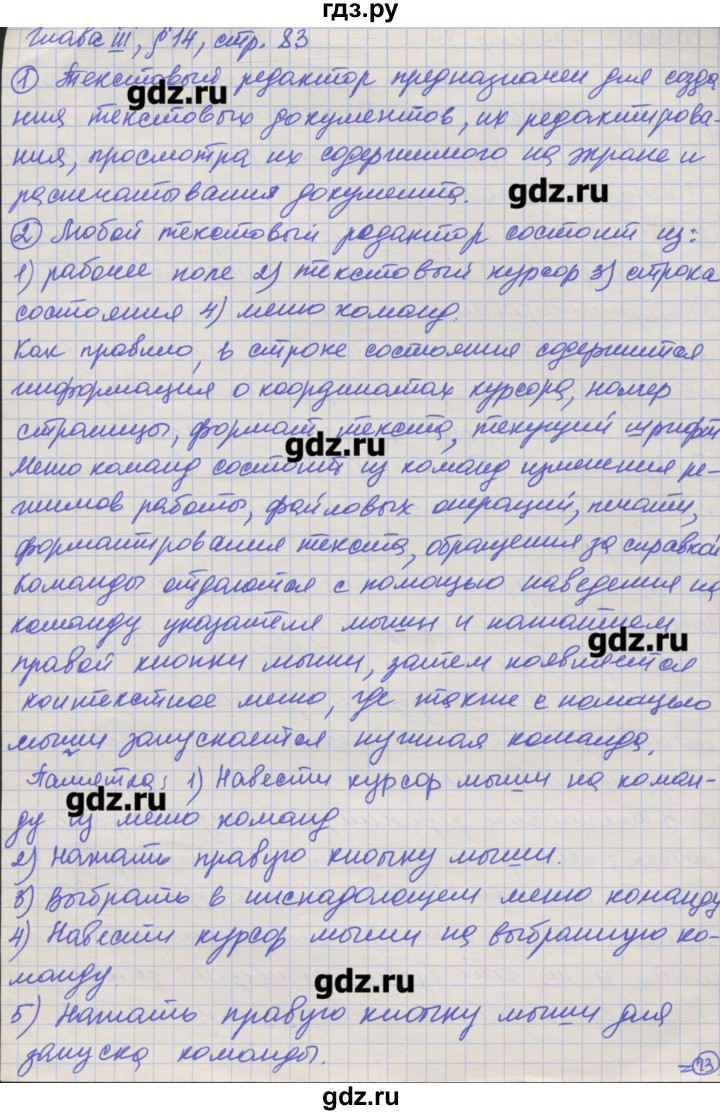 гдз.ру
Глава III, §14, стр. 83
① Текстовый редактор предназначен для созда
gdz.ru
ния текстовых документов, их редактирова-
ния, просмотра их содержимого на экране и
gdz.ru
распечатывания документа.
② Любой текстовый редактор состоит из:
1) рабочее поле 2) текстовый курсор 3) строка
состояния 4) меню команд.
Как правило, в строке состояния содержится
информация о координатах курсора, номер
страницы, формат текста, текущий шрифт
gdz.ru
Меню команд состоит из команд изменения ре-
жимов работы, файловых операций, печати,
форматирования текста, обращения за справкой
Команды отдаются с помощью наведения на
команду указателя мыши и нажатием
gdz.ru
правой кнопки мыши, затем появляется
контекстное меню, где также с помощью
мыши запускается нужная команда.
Памятка: 1) Навести курсор мыши на коман-
gdz.ru
ду из меню команд
2) Нажать правую кнопку мыши.
3) Выбрать в ниспадающем меню команду
4) Навести курсор мыши на выбранную ко-
манду.
gdz.ru
5) Нажать правую кнопку мыши для
запуска команды.
=23
gdz.ru